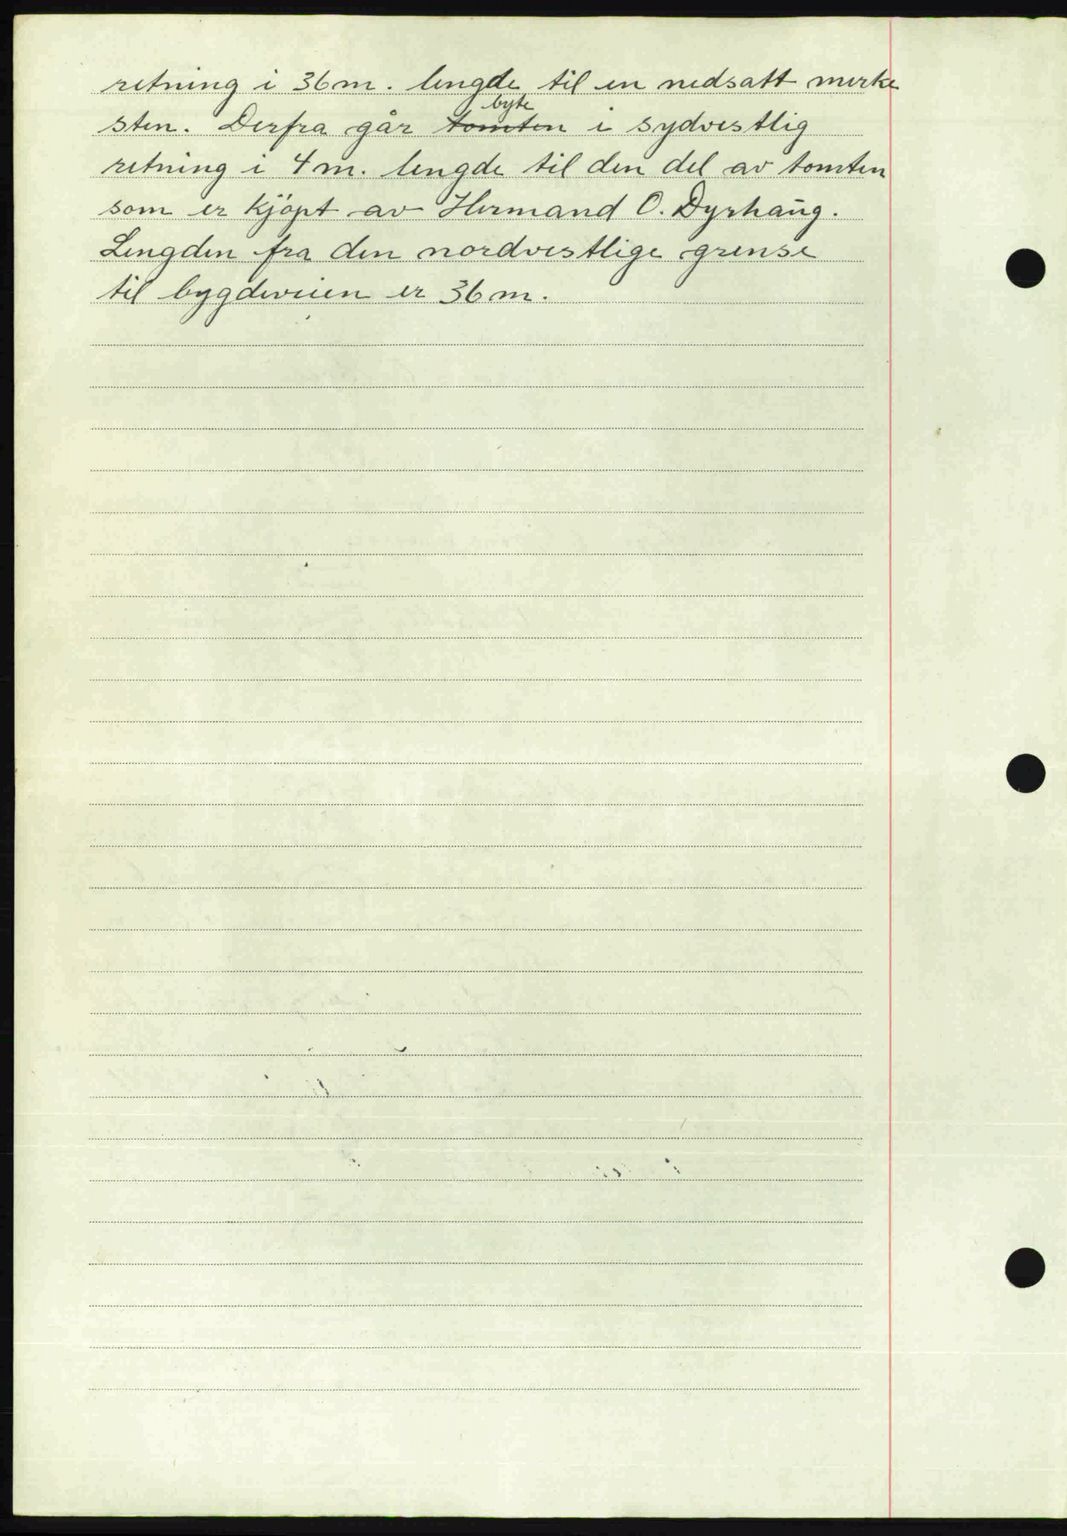 retning i 36 m. lengde til en nedsatt merke
sten. Derfra går ~~tomten~~ byte i sydvestlig
retning i 4 m. lengde til den del av tomten
som er kjöpt av Hermand O. Dyrhaug.
Lengden fra den nordvestlige grense
til bygdeveien er 36 m.